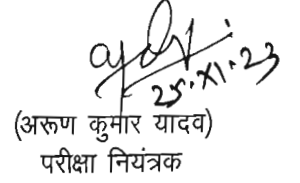 25.XI.23
(अरूण कुमार यादव)
परीक्षा नियंत्रक